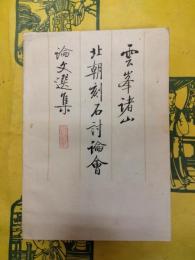 雲峯诸山
北朝刻石討論會
論文選集